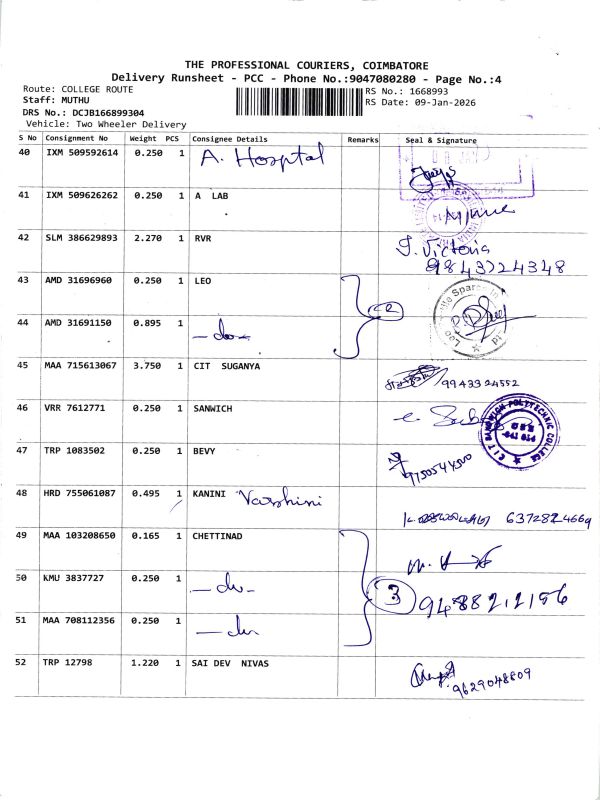 THE PROFESSIONAL COURIERS, COIMBATORE
Delivery Runsheet - PCC - Phone No.:9047080280 - Page No.:4
Route: COLLEGE ROUTE
RS No.: 1668993
Staff: MUTHU
RS Date: 09-Jan-2026
DRS No.: DCJB166899304
Vehicle: Two Wheeler Delivery
S No Consignment No Weight PCS Consignee Details Remarks Seal & Signature
40 IXM 509592614 0.250 1 A. Hosptal
41 IXM 509626262 0.250 1 A LAB
42 SLM 386629893 2.270 1 RVR J. Victoria
9843724348
43 AMD 31696960 0.250 1 LEO
44 AMD 31691150 0.895 1 -do-
45 MAA 715613067 3.750 1 CIT SUGANYA 9943324552
46 VRR 7612771 0.250 1 SANWICH
CIT SANDWICH POLYTECHNIC COLLEGE
47 TRP 1083502 0.250 1 BEVY
48 HRD 755061087 0.495 1 KANINI Varshini 6372824669
49 MAA 103208650 0.165 1 CHETTINAD
50 KMU 3837727 0.250 1 -do- 3
51 MAA 708112356 0.250 1 -do-
52 TRP 12798 1.220 1 SAI DEV NIVAS
9629048809